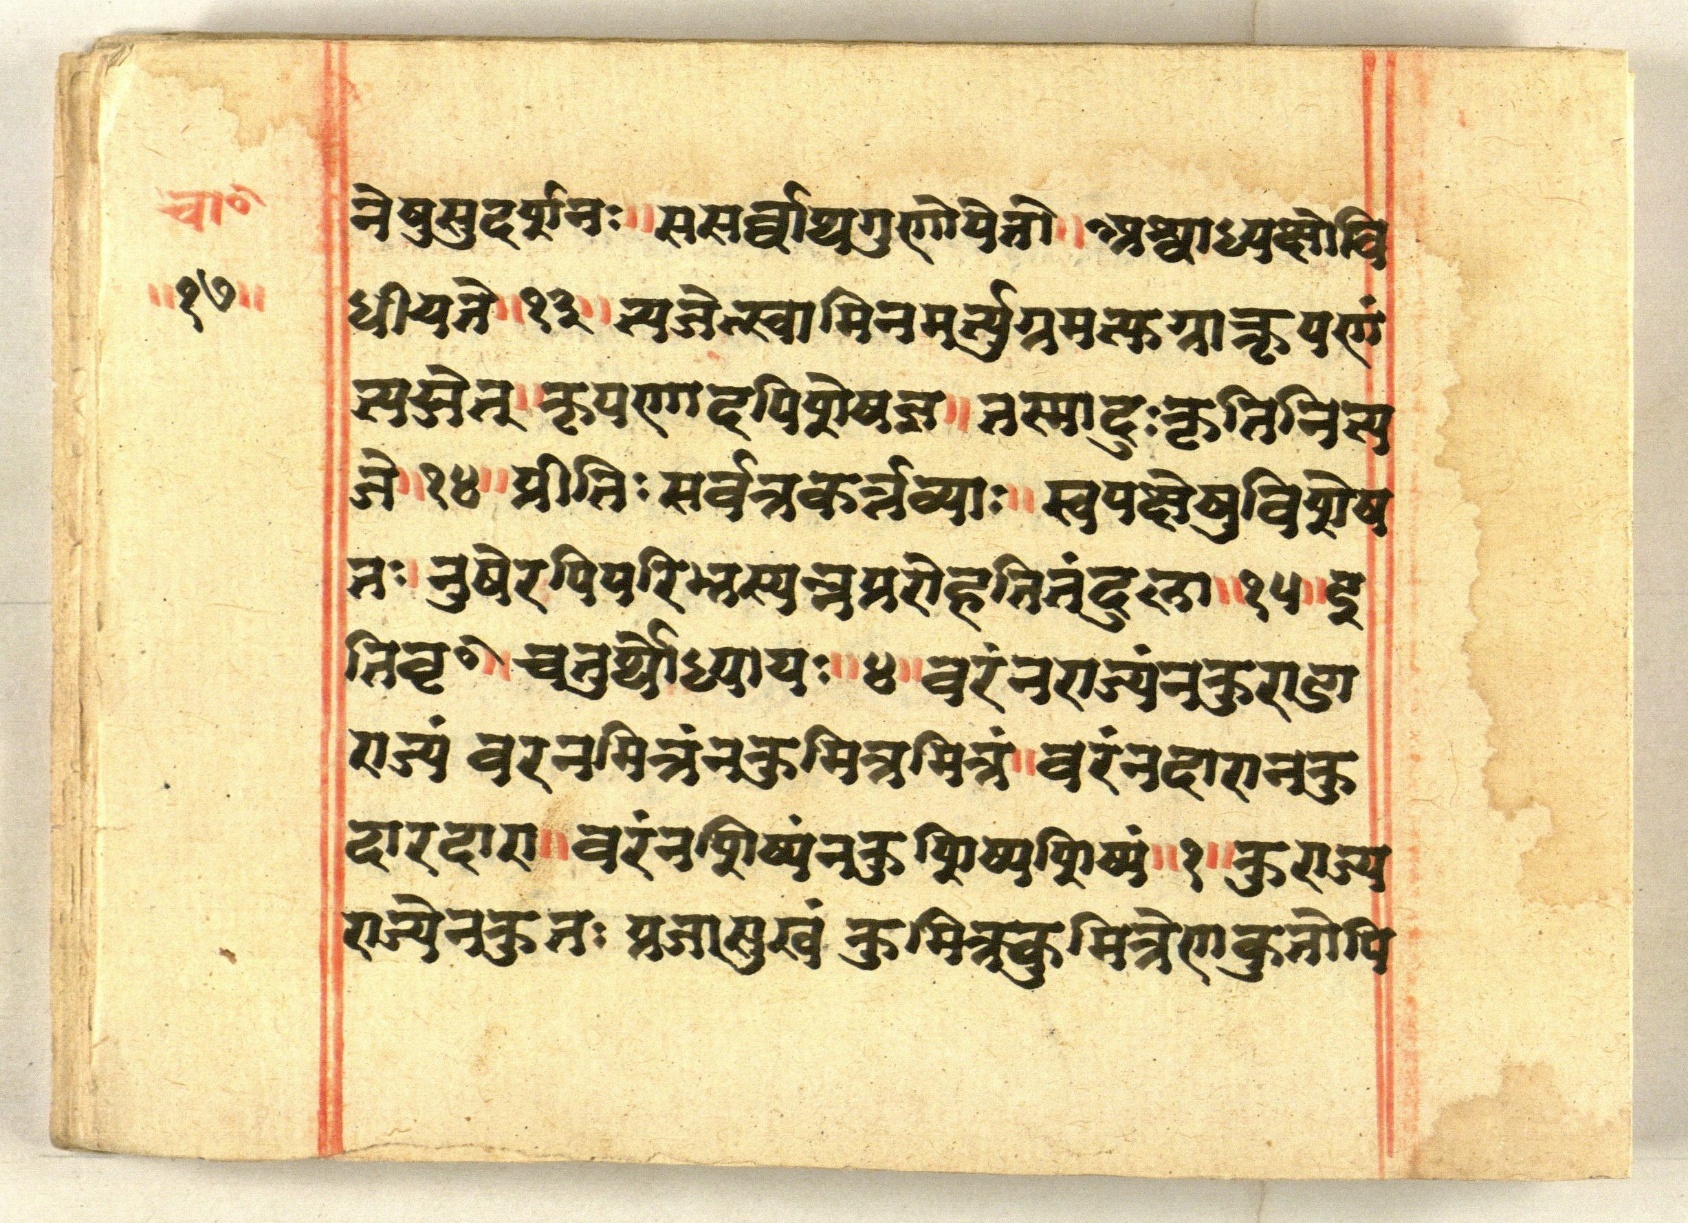 चा॰
॥१७॥
तेषुसुदर्शनः॥ससर्व्वाश्वगुणोपेतो॥अश्वाध्यक्षोवि
धीयते॥१३॥त्यजेत्स्वामिनमत्युग्रमत्युग्रात्कृपणं
त्यजेत्॥कृपणादपिशेषज्ञ॥तस्मादुःकृतिनित्य
जे॥१४॥प्रीतिःसर्वत्रकर्त्तव्याः॥स्वपक्षेषुविशेष
तः॥तुषेरपिपरिभ्रस्यन्नप्ररोहतितंदुला॥१५॥इ
तिवृ॰॥चतुर्थोऽध्यायः॥४॥वरंनराज्यंनकुराजा
राज्यं वरनमित्रंनकुमित्रमित्रं॥वरंनदारानकु
दारदारा॥वरंनशिष्यंनकुशिष्यशिष्यं॥१॥कुराज्य
राज्येनकुतः प्रजासुखं कुमित्रकुमित्रेणकुतोपि